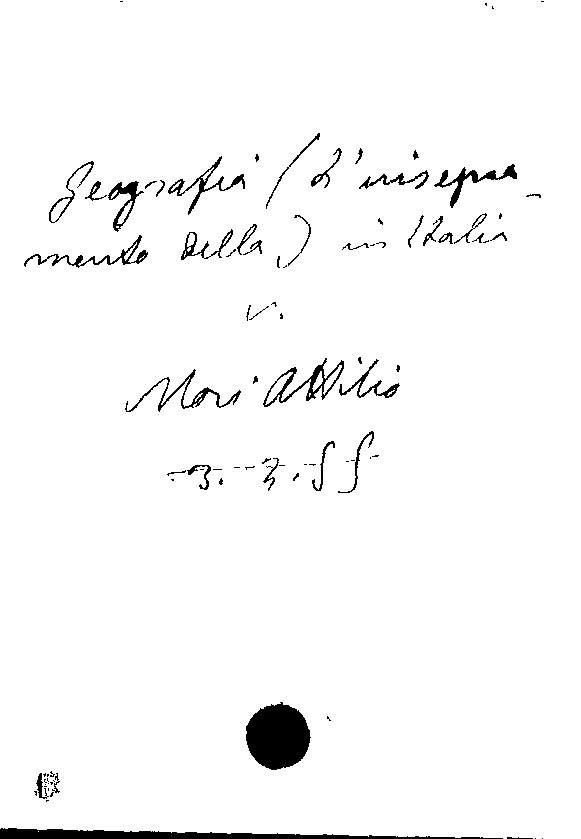 Geografia (L'insegna-
mento della) in Italia
v.
Mori Attilio